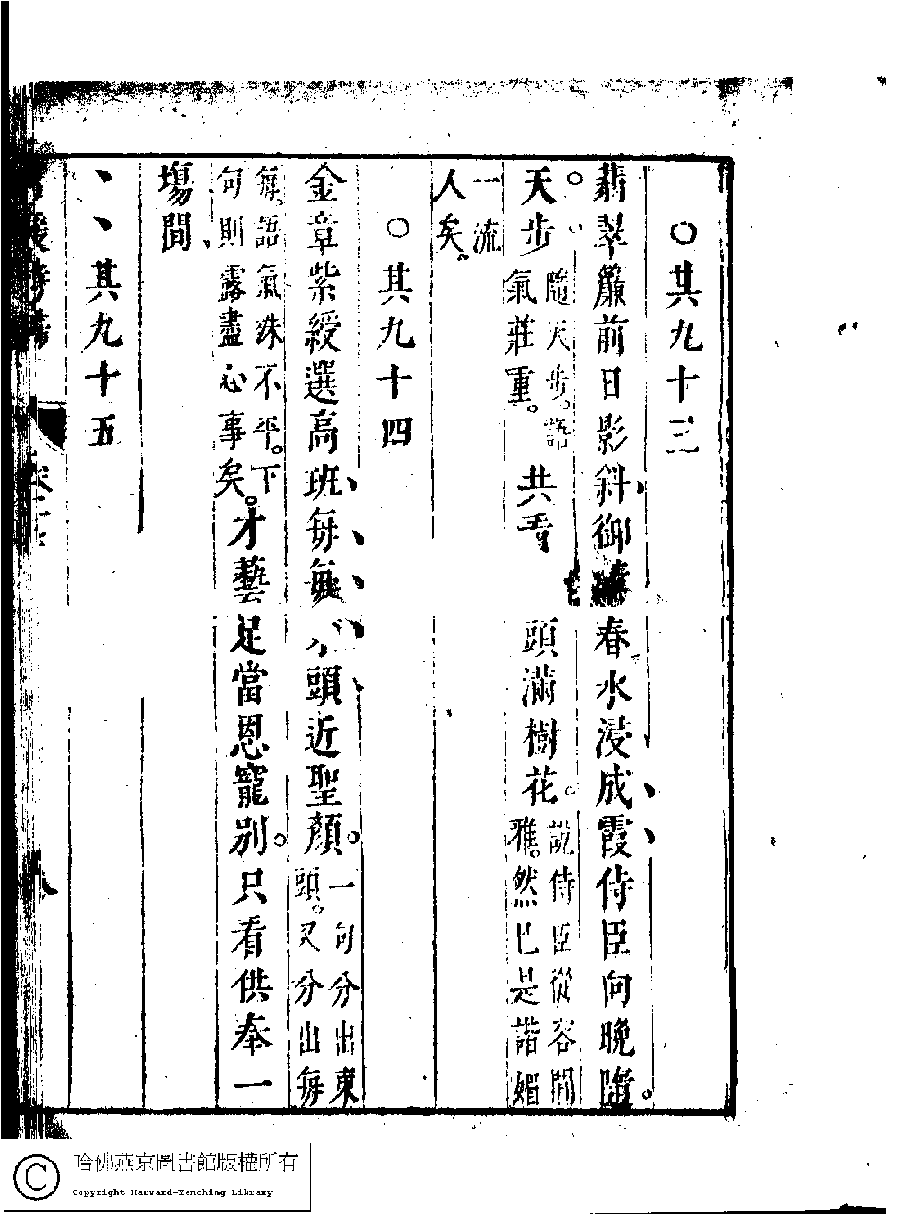 ○其九十三
翡翠簾前日影斜御春水浸成霞侍臣向晚隨。
天步隨天步。語氣莊重。共看頭滿樹花。說侍臣從容閒雅。然已是諧媚
一流人矣。
○其九十四
金章紫綬選高班每每頭近聖顏。一句分出東頭。又分出每
每語氣殊不平。下句則露盡心事矣。才藝足當恩寵別。只看供奉一
場間
、、其九十五
八
哈佛燕京圖書館版權所有
Copyright Harvard-Yenching Library